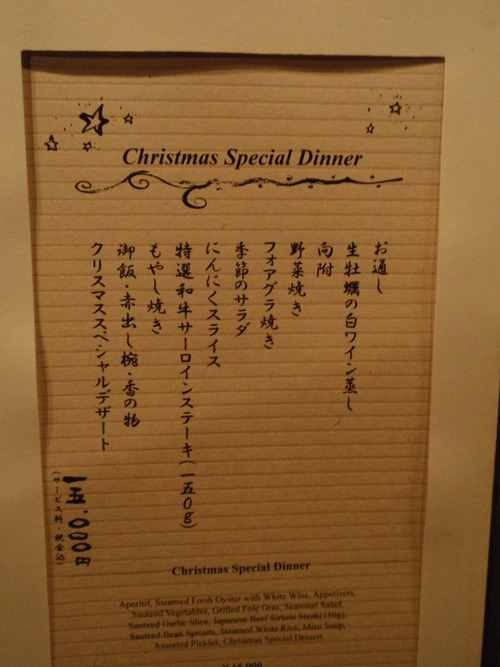 Christmas Special Dinner
お通し
生牡蠣の白ワイン蒸し
向附
野菜焼き
フォアグラ焼き
季節のサラダ
にんにくスライス
特選和牛サーロインステーキ(一五〇g)
もやし焼き
御飯・赤出し椀・香の物
クリスマススペシャルデザート
一五、〇〇〇円
(サービス料・税金込)
Christmas Special Dinner
Aperitif, Steamed Fresh Oyster with White Wine, Appetizers,
Sauteed Vegetables, Grilled Foie Gras, Seasonal Salad,
Sauteed Garlic Slice, Japanese Beef Sirloin Steak(150g),
Sauteed Bean Sprouts, Steamed White Rice, Miso Soup,
Assorted Pickles, Christmas Special Dessert
¥15,000